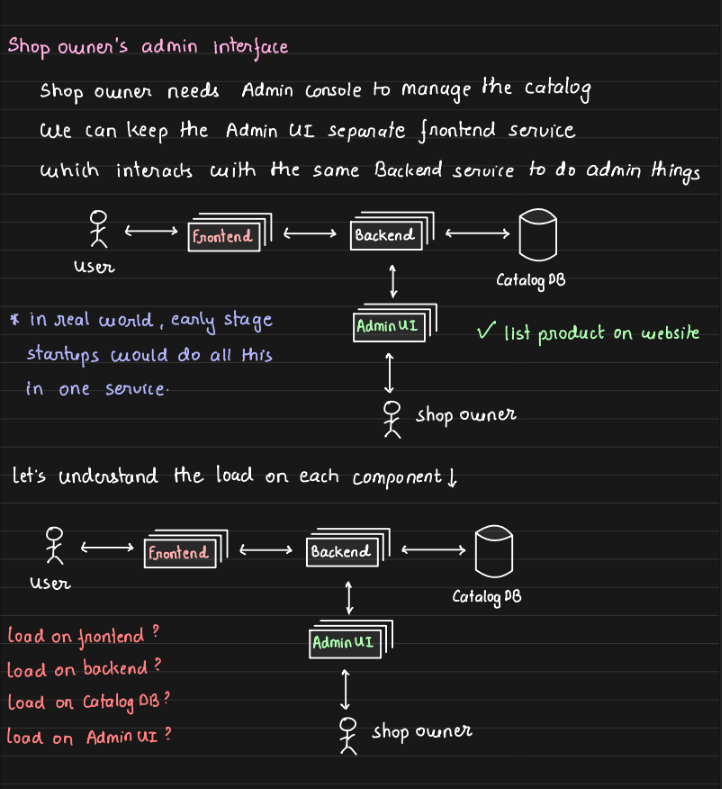 Shop owner's admin interface
Shop owner needs Admin console to manage the catalog
We can keep the Admin UI separate frontend service
which interacts with the same Backend service to do admin things
Frontend
Backend
user
Catalog DB
* in real world, early stage
startups would do all this
in one service.
Admin UI
✓ list product on website
shop owner
let's understand the load on each component ↓
Frontend
Backend
user
Catalog DB
load on frontend ?
load on backend ?
load on Catalog DB ?
load on Admin UI ?
Admin UI
shop owner